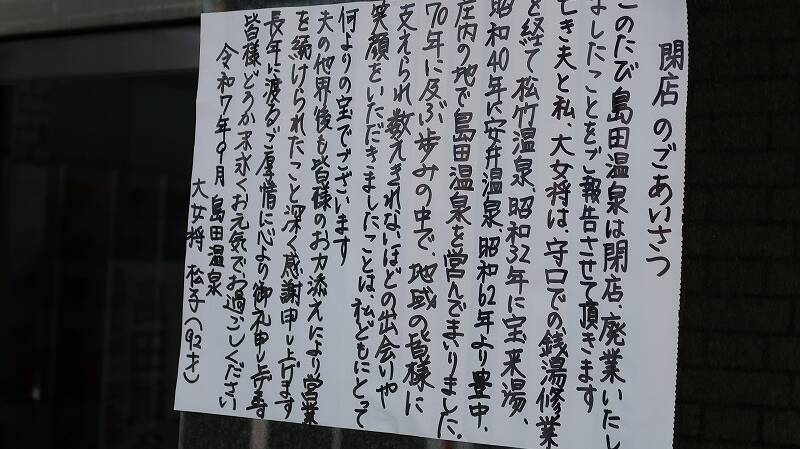 閉店のごあいさつ
このたび島田温泉は閉店、廃業いたし
ましたことをご報告させて頂きます
亡き夫と私、大女将は、守口での銭湯修業
を経て松竹温泉、昭和32年に宝来湯、
昭和40年に安井温泉、昭和62年より豊中、
庄内の地で島田温泉を営んでまいりました。
70年に及ぶ歩みの中で、地域の皆様に
支えられ数えきれないほどの出会いや
笑顔をいただきましたことは、私どもにとって
何よりの宝でございます
夫の他界後も皆様のお力添えにより営業
を続けられたこと深く感謝申し上げます
長年に渡るご厚情に心より御礼申し上げます
皆様どうか末永くお元気でお過ごしください
令和7年9月 島田温泉
大女将 松子(92才)